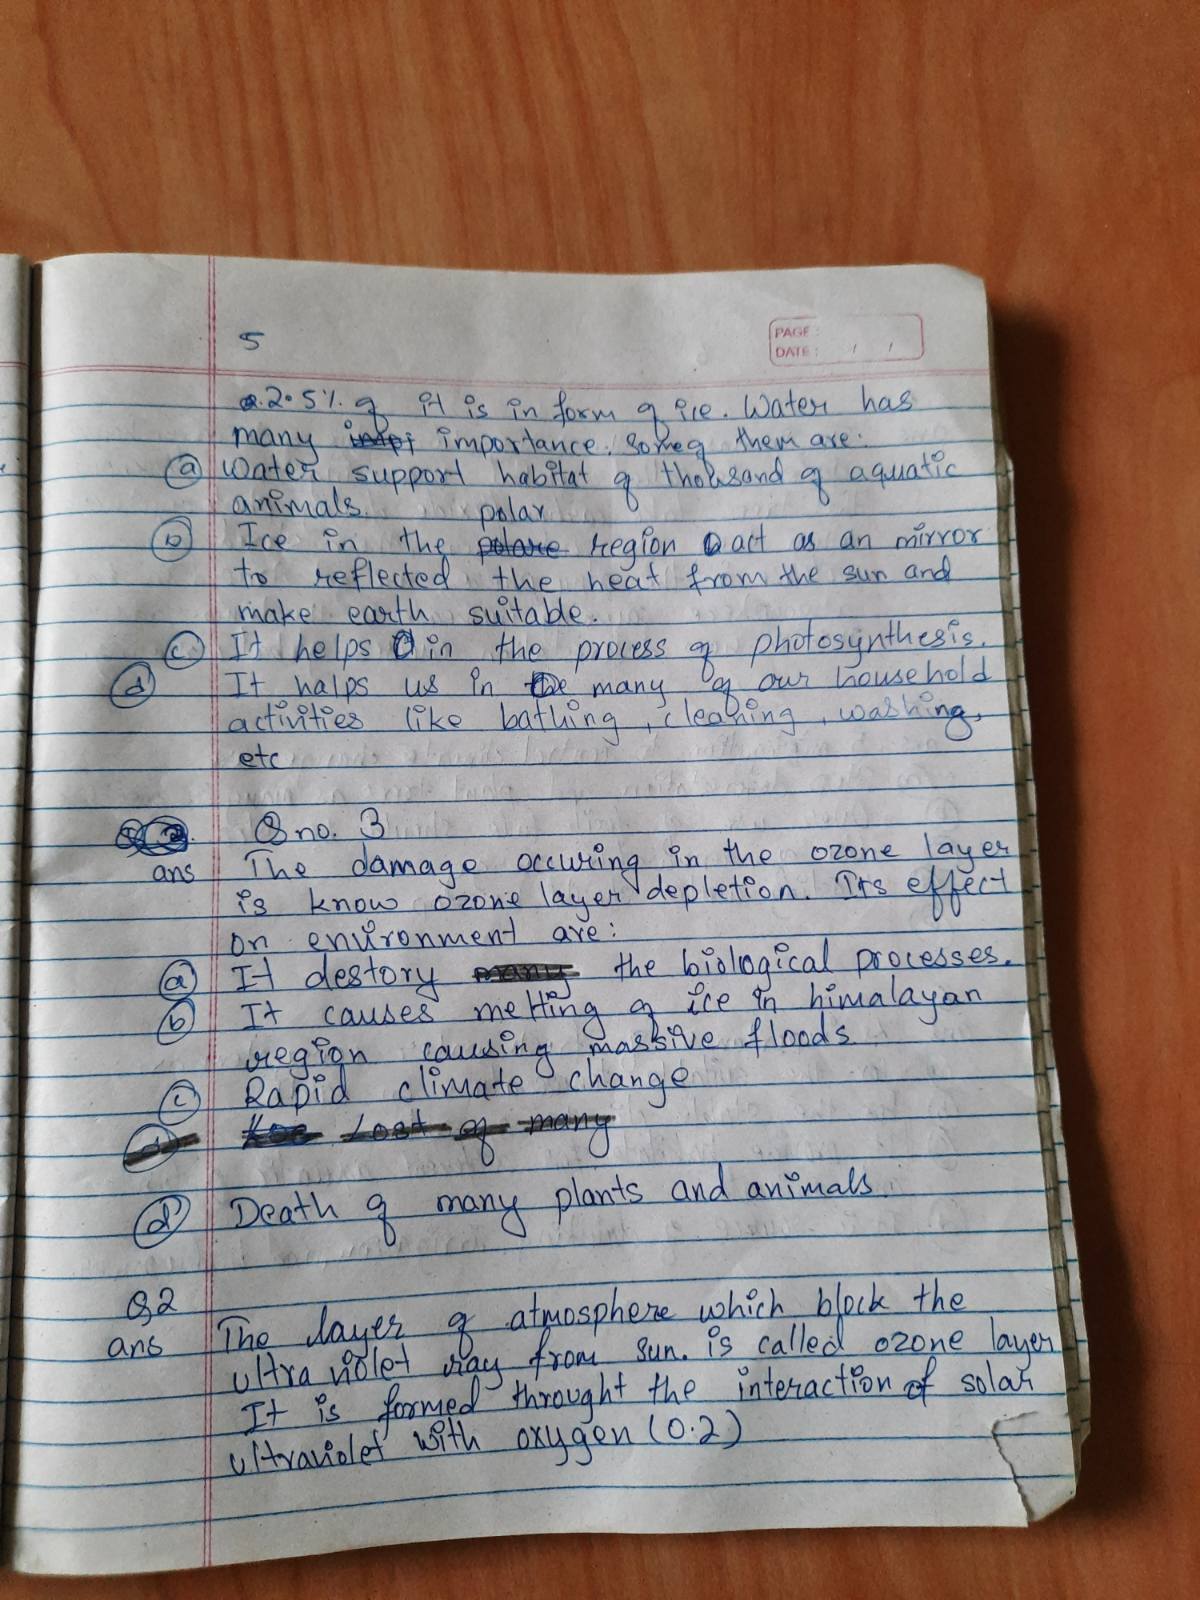 5
PAGE:
DATE: / /
2.5% of it is in form of ice. Water has
many importance. Some of them are:
(a) Water support habitat of thousand of aquatic
animals.
polar
(b) Ice in the polare region act as an mirror
to reflected the heat from the sun and
make earth suitable.
(c) It helps in the process of photosynthesis.
(d) It halps us in many of our household
activities like bathing, cleaning, washing,
etc
Q no. 3
ans The damage occuring in the ozone layer
is know ozone layer depletion. Its effect
on environment are:
(a) It destory many the biological processes.
(b) It causes melting of ice in himalayan
region causing massive floods
(c) Rapid climate change
(d) Lost of many
(d) Death of many plants and animals.
Q2
ans The layer of atmosphere which block the
ultra violet ray from sun. is called ozone layer
It is formed throught the interaction of solar
ultraviolet with oxygen (0.2)